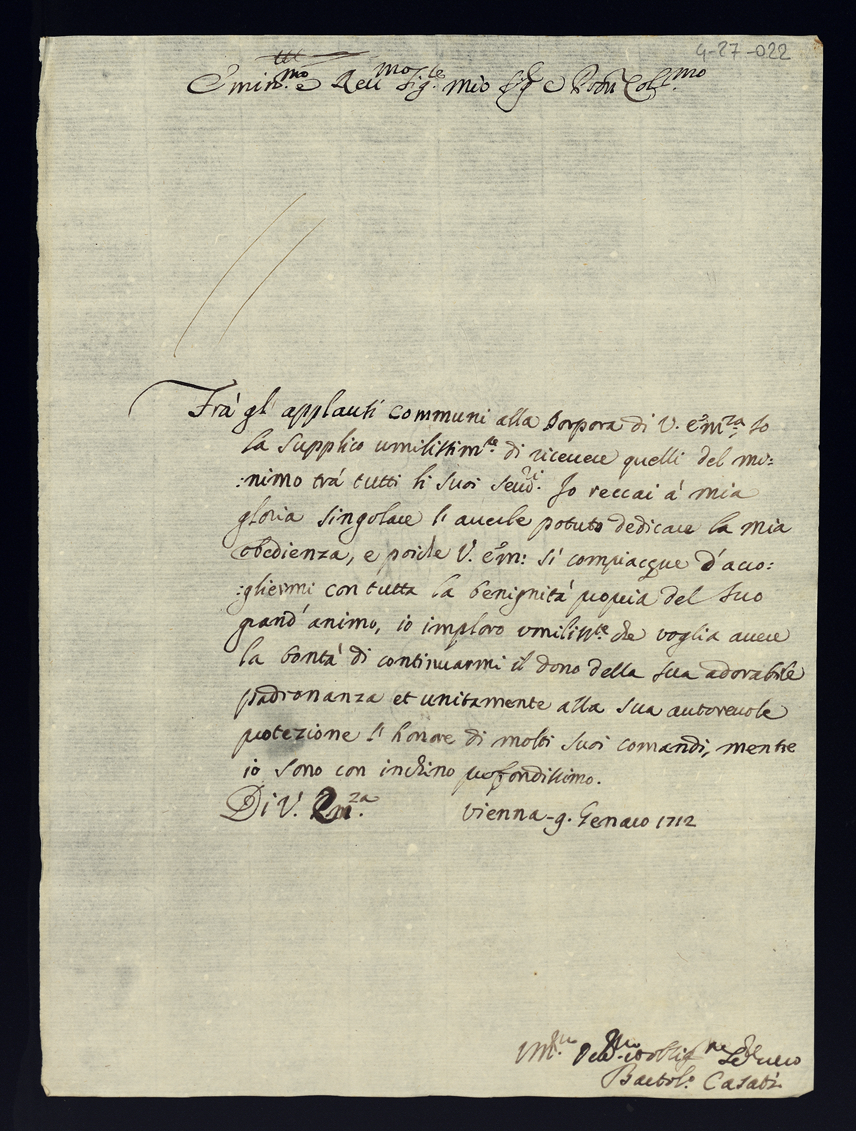 4-27-022
Emin.mo e Reu.mo Sig.re mio Sig.r e Pron Col.mo
Frà gl' applausi communi alla Porpora di V. Em.za Io
la supplico umilissim.te di riceuere quelli del mi:
:nimo trà tutti li suoi seru.ri. Io reccai à mia
gloria singolare l' auerle potuto dedicare la mia
obedienza, e poiche V. Em: si compiacque d' acco:
:gliermi con tutta la benignità propria del suo
grand' animo, io imploro umiliss.te che voglia auere
la bontà di continuarmi il dono della sua adorabile
padronanza et unitamente alla sua autoreuole
protezione l' honore di molti suoi comandi, mentre
io sono con inchino profondissimo.
Di V. Em.za Vienna-9. Genaro 1712
Seruo
Bartol.o Casati